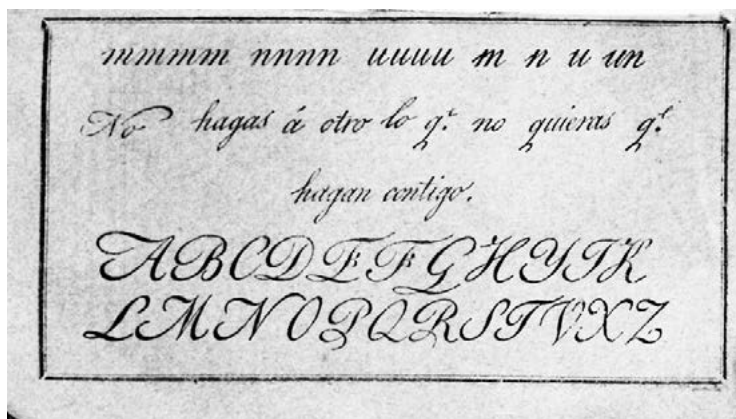 mmmmm nnnn uuuu m n u un
No hagas á otro lo q.e no quieras q.e
hagan contigo.
ABCDEFGHYIK
LMNOPQRSTVXZ